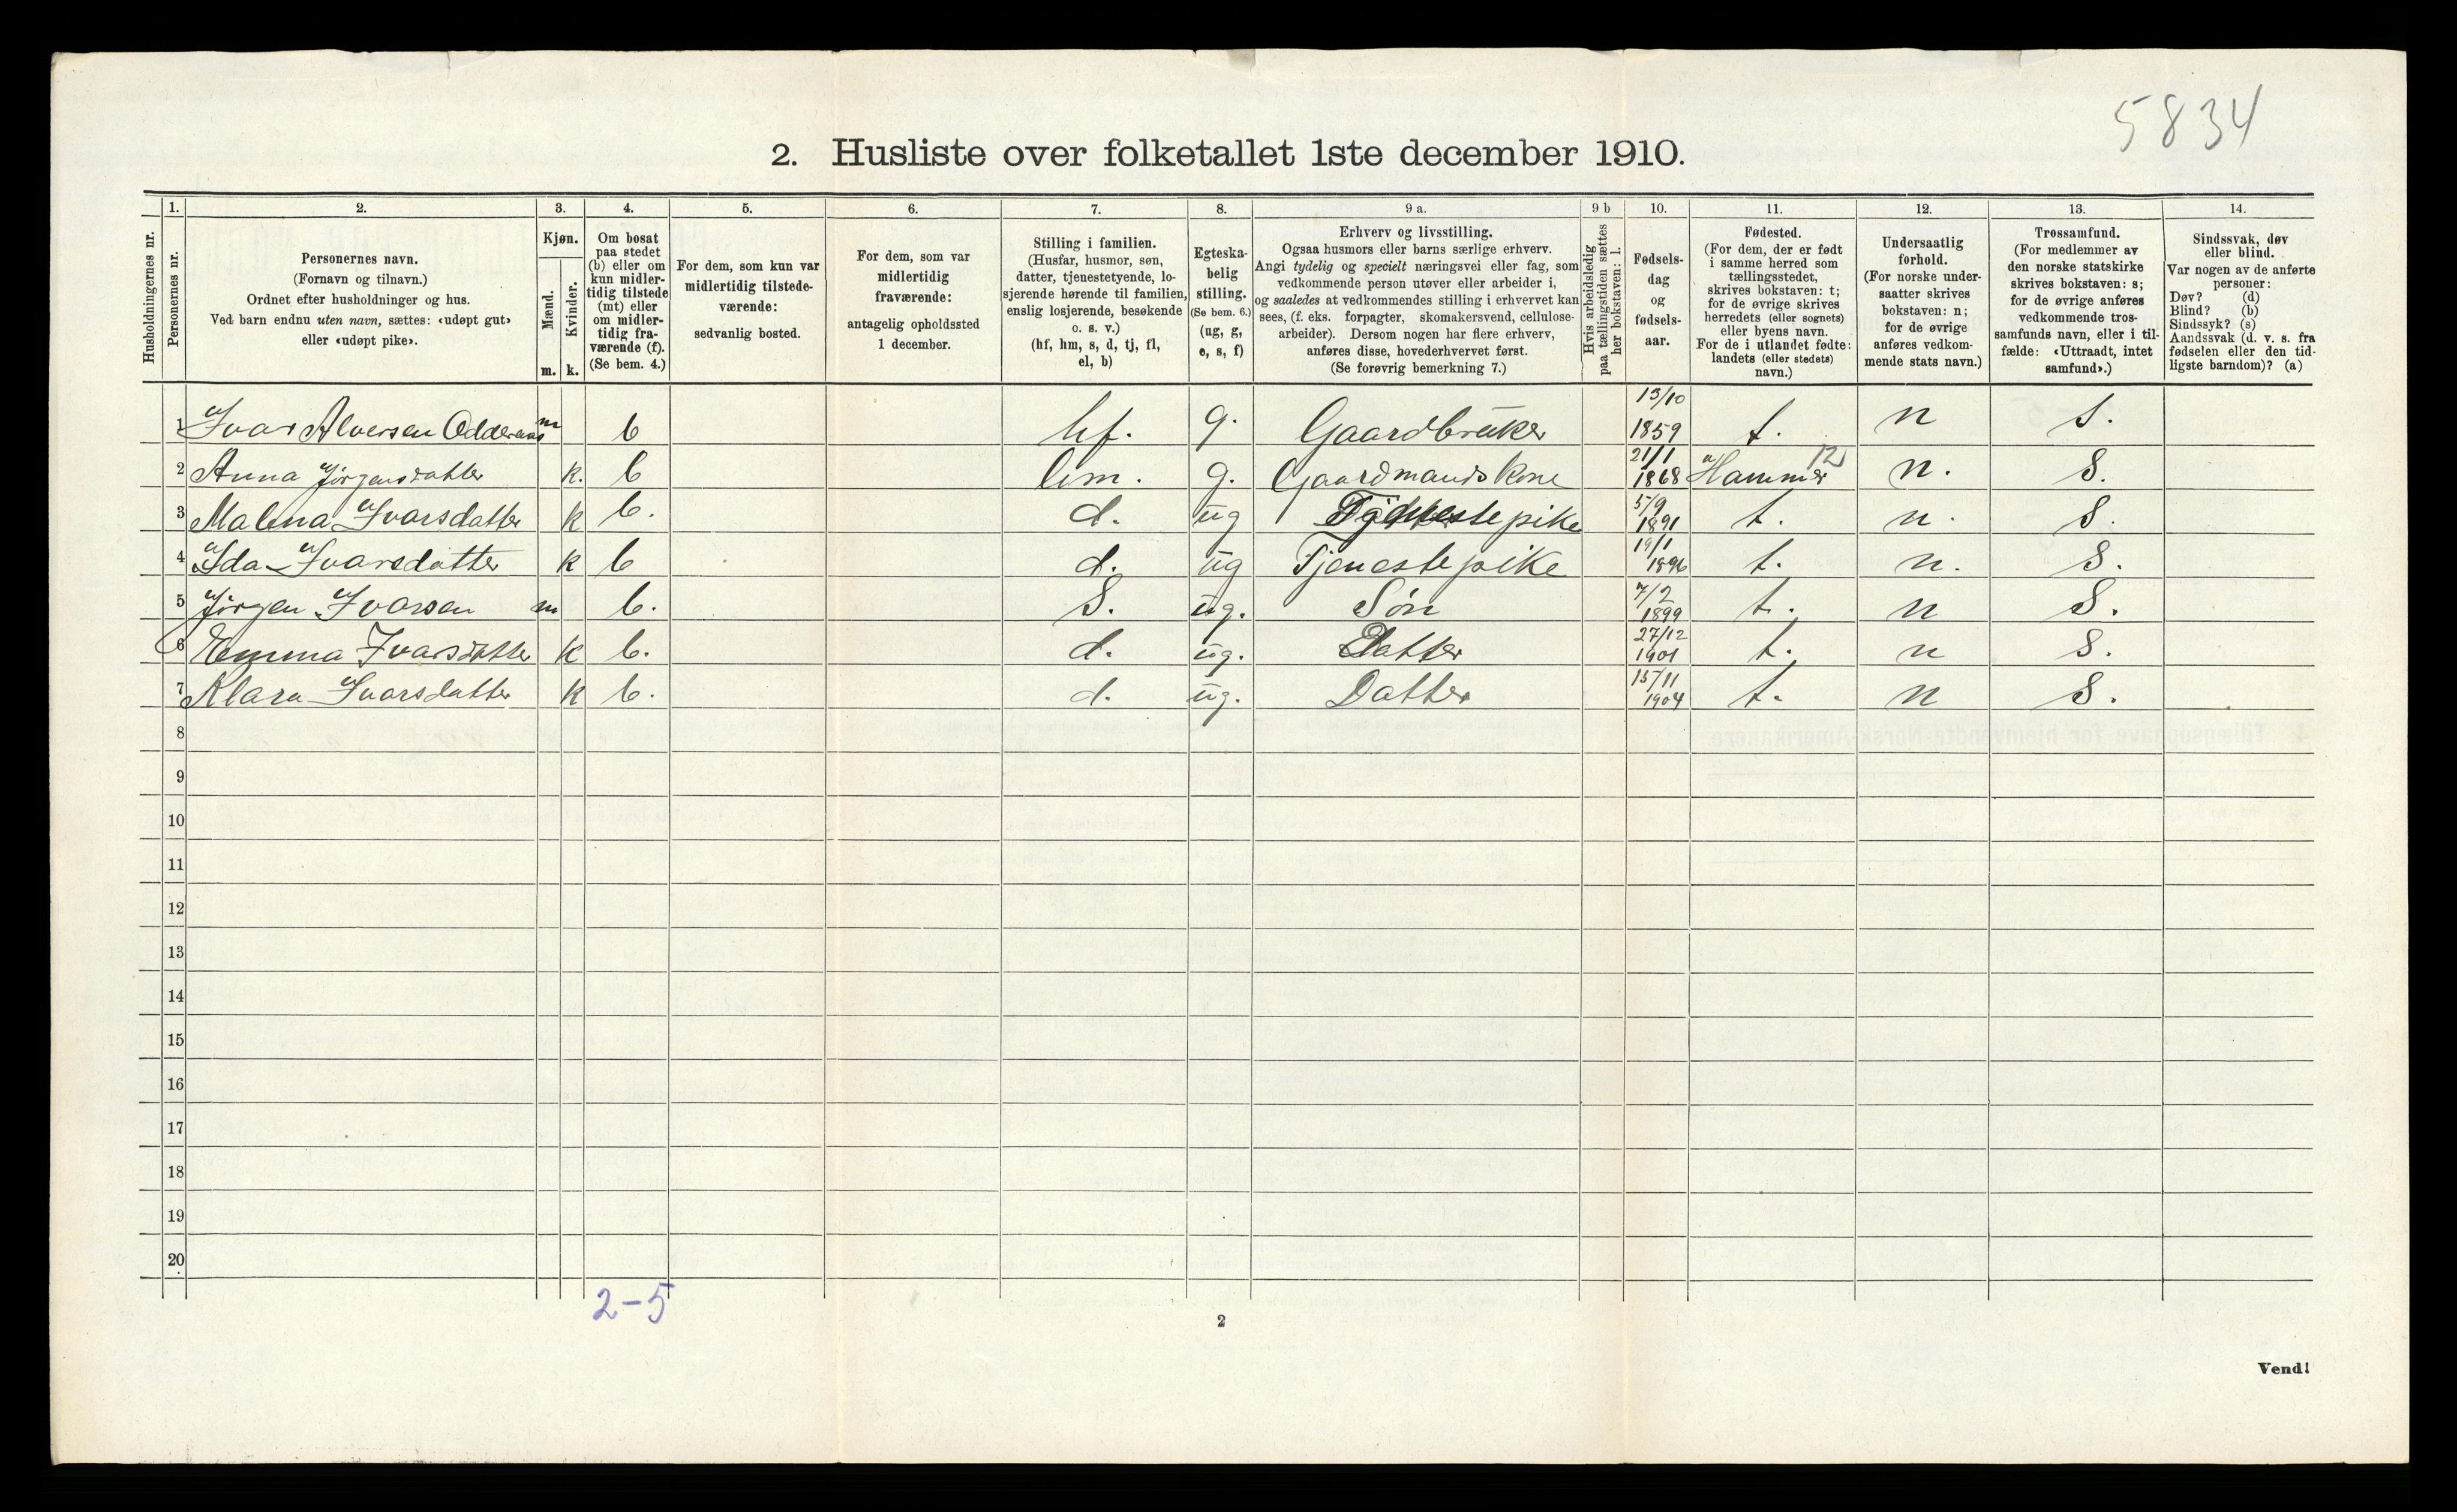 5834
2. Husliste over folketallet 1ste december 1910.
1. 2. 3. 4. 5. 6. 7. 8. 9 a. 9 b 10. 11. 12. 13. 14.
Husholdningernes nr.
Personernes nr.
Personernes navn.
(Fornavn og tilnavn.)
Ordnet efter husholdninger og hus.
Ved barn endnu uten navn, sættes: «udøpt gut»
eller «udøpt pike».
Kjøn.
Mænd.
Kvinder.
m. k.
Om bosat
paa stedet
(b) eller om
kun midler-
tidig tilstede
(mt) eller
om midler-
tidig fra-
værende (f).
(Se bem. 4.)
For dem, som kun var
midlertidig tilstede-
værende:
sedvanlig bosted.
For dem, som var
midlertidig
fraværende:
antagelig opholdssted
1 december.
Stilling i familien.
(Husfar, husmor, søn,
datter, tjenestetyende, lo-
sjerende hørende til familien,
enslig losjerende, besøkende
o. s. v.)
(hf, hm, s, d, tj, fl,
el, b)
Egteska-
belig
stilling.
(Se bem. 6.)
(ug, g,
e, s, f)
Erhverv og livsstilling.
Ogsaa husmors eller barns særlige erhverv.
Angi tydelig og specielt næringsvei eller fag, som
vedkommende person utøver eller arbeider i,
og saaledes at vedkommendes stilling i erhvervet kan
sees, (f. eks. forpagter, skomakersvend, cellulose-
arbeider). Dersom nogen har flere erhverv,
anføres disse, hovederhvervet først.
(Se forøvrig bemerkning 7.)
Hvis arbeidsledig
paa tællingstiden sættes
her bokstaven: l.
Fødsels-
dag
og
fødsels-
aar.
Fødested.
(For dem, der er født
i samme herred som
tællingsstedet,
skrives bokstaven: t;
for de øvrige skrives
herredets (eller sognets)
eller byens navn.
For de i utlandet fødte:
landets (eller stedets)
navn.)
Undersaatlig
forhold.
(For norske under-
saatter skrives
bokstaven: n;
for de øvrige
anføres vedkom-
mende stats navn.)
Trossamfund.
(For medlemmer av
den norske statskirke
skrives bokstaven: s;
for de øvrige anføres
vedkommende tros-
samfunds navn, eller i til-
fælde: «Uttraadt, intet
samfund».)
Sindssvak, døv
eller blind.
Var nogen av de anførte
personer:
Døv? (d)
Blind? (b)
Sindssyk? (s)
Aandssvak (d. v. s. fra
fødselen eller den tid-
ligste barndom)? (a)
1 Ivar Alversen m b hf. g. Gaardbruker 13/10 1859 t. n s.
2 Anna Jørgensdatter k. b hm. g. Gaardmandskone 21/1 1868 Hammer 12 n. S.
3 Malena Ivarsdatter k b. d. ug Tjenestepike 5/9 1891 t. n. S.
4 Ida Ivarsdatter k b d. ug Tjenestepike 19/1 1896 t. n. S.
5 Jörgen Ivarsen m b. S. ug. Søn 7/2 1899 t. n S.
6 Emma Ivarsdatter k b. d. ug. Datter 27/12 1901 t. n S.
7 Klara Ivarsdatter k b. d. ug. Datter 15/11 1904 t. n S.
8
9
10
11
12
13
14
15
16
17
18
19
20
2-5
2
Vend!